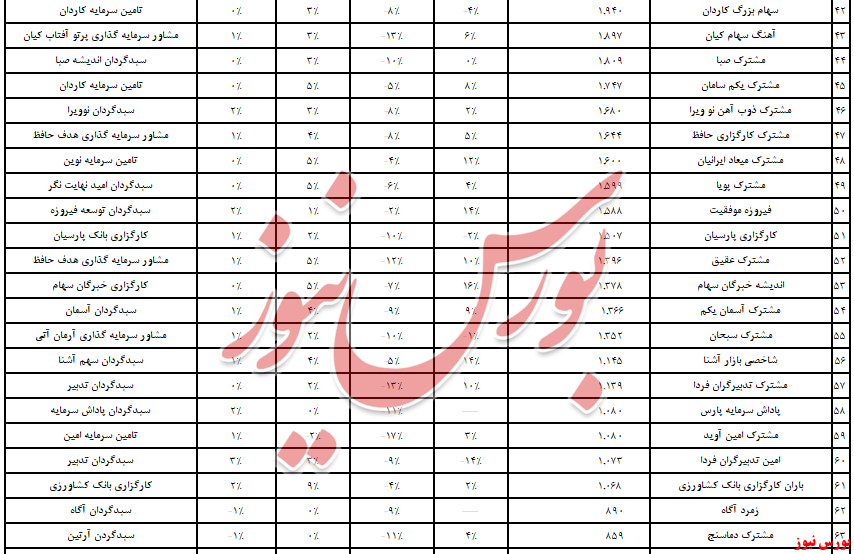 ۴۲ سهام بزرگ کاردان ۱.۹۴۰ -۴٪ -۸٪ ۳٪ ۰٪ تامین سرمایه کاردان
۴۳ آهنگ سهام کیان ۱.۸۹۷ ۶٪ -۱۳٪ ۳٪ ۱٪ مشاور سرمایه گذاری پرتو آفتاب کیان
۴۴ مشترک صبا ۱.۸۰۹ ۰٪ -۱۰٪ ۳٪ ۰٪ سبدگردان اندیشه صبا
۴۵ مشترک یکم سامان ۱.۷۴۷ ۸٪ -۵٪ ۵٪ ۰٪ تامین سرمایه کاردان
۴۶ مشترک ذوب آهن نو ویرا ۱.۶۸۰ ۲٪ -۸٪ ۳٪ ۲٪ سبدگردان نوویرا
۴۷ مشترک کارگزاری حافظ ۱.۶۴۴ ۵٪ -۸٪ ۴٪ ۱٪ مشاور سرمایه گذاری هدف حافظ
۴۸ مشترک میعاد ایرانیان ۱.۶۰۰ ۱۲٪ -۴٪ ۵٪ ۰٪ تامین سرمایه نوین
۴۹ مشترک پویا ۱.۵۹۹ ۴٪ -۶٪ ۵٪ ۰٪ سبدگردان امید نهایت نگر
۵۰ فیروزه موفقیت ۱.۵۸۸ ۱۴٪ -۲٪ ۱٪ ۲٪ سبدگردان توسعه فیروزه
۵۱ کارگزاری پارسیان ۱.۵۰۷ -۲٪ -۱۰٪ ۲٪ ۱٪ کارگزاری بانک پارسیان
۵۲ مشترک عقیق ۱.۳۹۶ ۱۰٪ -۱۲٪ ۵٪ ۱٪ مشاور سرمایه گذاری هدف حافظ
۵۳ اندیشه خبرگان سهام ۱.۳۷۸ ۱۶٪ -۷٪ ۵٪ ۰٪ کارگزاری خبرگان سهام
۵۴ مشترک آسمان یکم ۱.۳۶۶ ۹٪ -۹٪ ۴٪ ۱٪ سبدگردان آسمان
۵۵ مشترک سبحان ۱.۳۵۲ -۱٪ -۱۰٪ ۲٪ ۱٪ مشاور سرمایه گذاری آرمان آتی
۵۶ شاخصی بازار آشنا ۱.۱۴۵ ۱۴٪ -۵٪ ۴٪ ۱٪ سبدگردان سهم آشنا
۵۷ مشترک تدبیرگران فردا ۱.۱۳۹ ۱۰٪ -۱۳٪ ۲٪ ۰٪ سبدگردان تدبیر
۵۸ پاداش سرمایه پارس ۱.۰۸۰ — -۱۱٪ ۰٪ ۲٪ سبدگردان پاداش سرمایه
۵۹ مشترک امین آوید ۱.۰۸۰ ۳٪ -۱۷٪ -۲٪ ۱٪ تامین سرمایه امین
۶۰ امین تدبیرگران فردا ۱.۰۷۳ -۱۴٪ -۹٪ ۳٪ ۳٪ سبدگردان تدبیر
۶۱ باران کارگزاری بانک کشاورزی ۱.۰۶۸ ۲٪ -۴٪ ۹٪ ۲٪ کارگزاری بانک کشاورزی
۶۲ زمرد آگاه ۸۹۰ — -۹٪ ۰٪ -۱٪ سبدگردان آگاه
۶۳ مشترک دماسنج ۸۵۹ ۴٪ -۱۱٪ ۰٪ -۱٪ سبدگردن آرتین
بورس نیوز
بورس نیوز